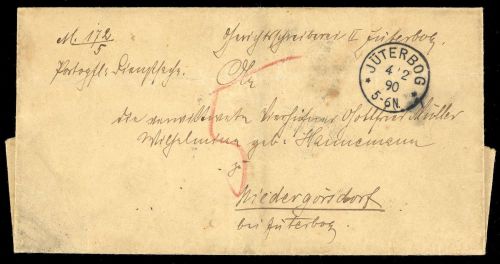 M. 172/5
Gerichtsschreiberei II Jüterbog.
Portopfl. Dienstsache.
JÜTERBOG
4 2
90
5-6N.
An
die verwittwete Gottfried Müller
Wilhelmine geb. Hannemann
zu
Niedergörsdorf
bei Jüterbog.
5